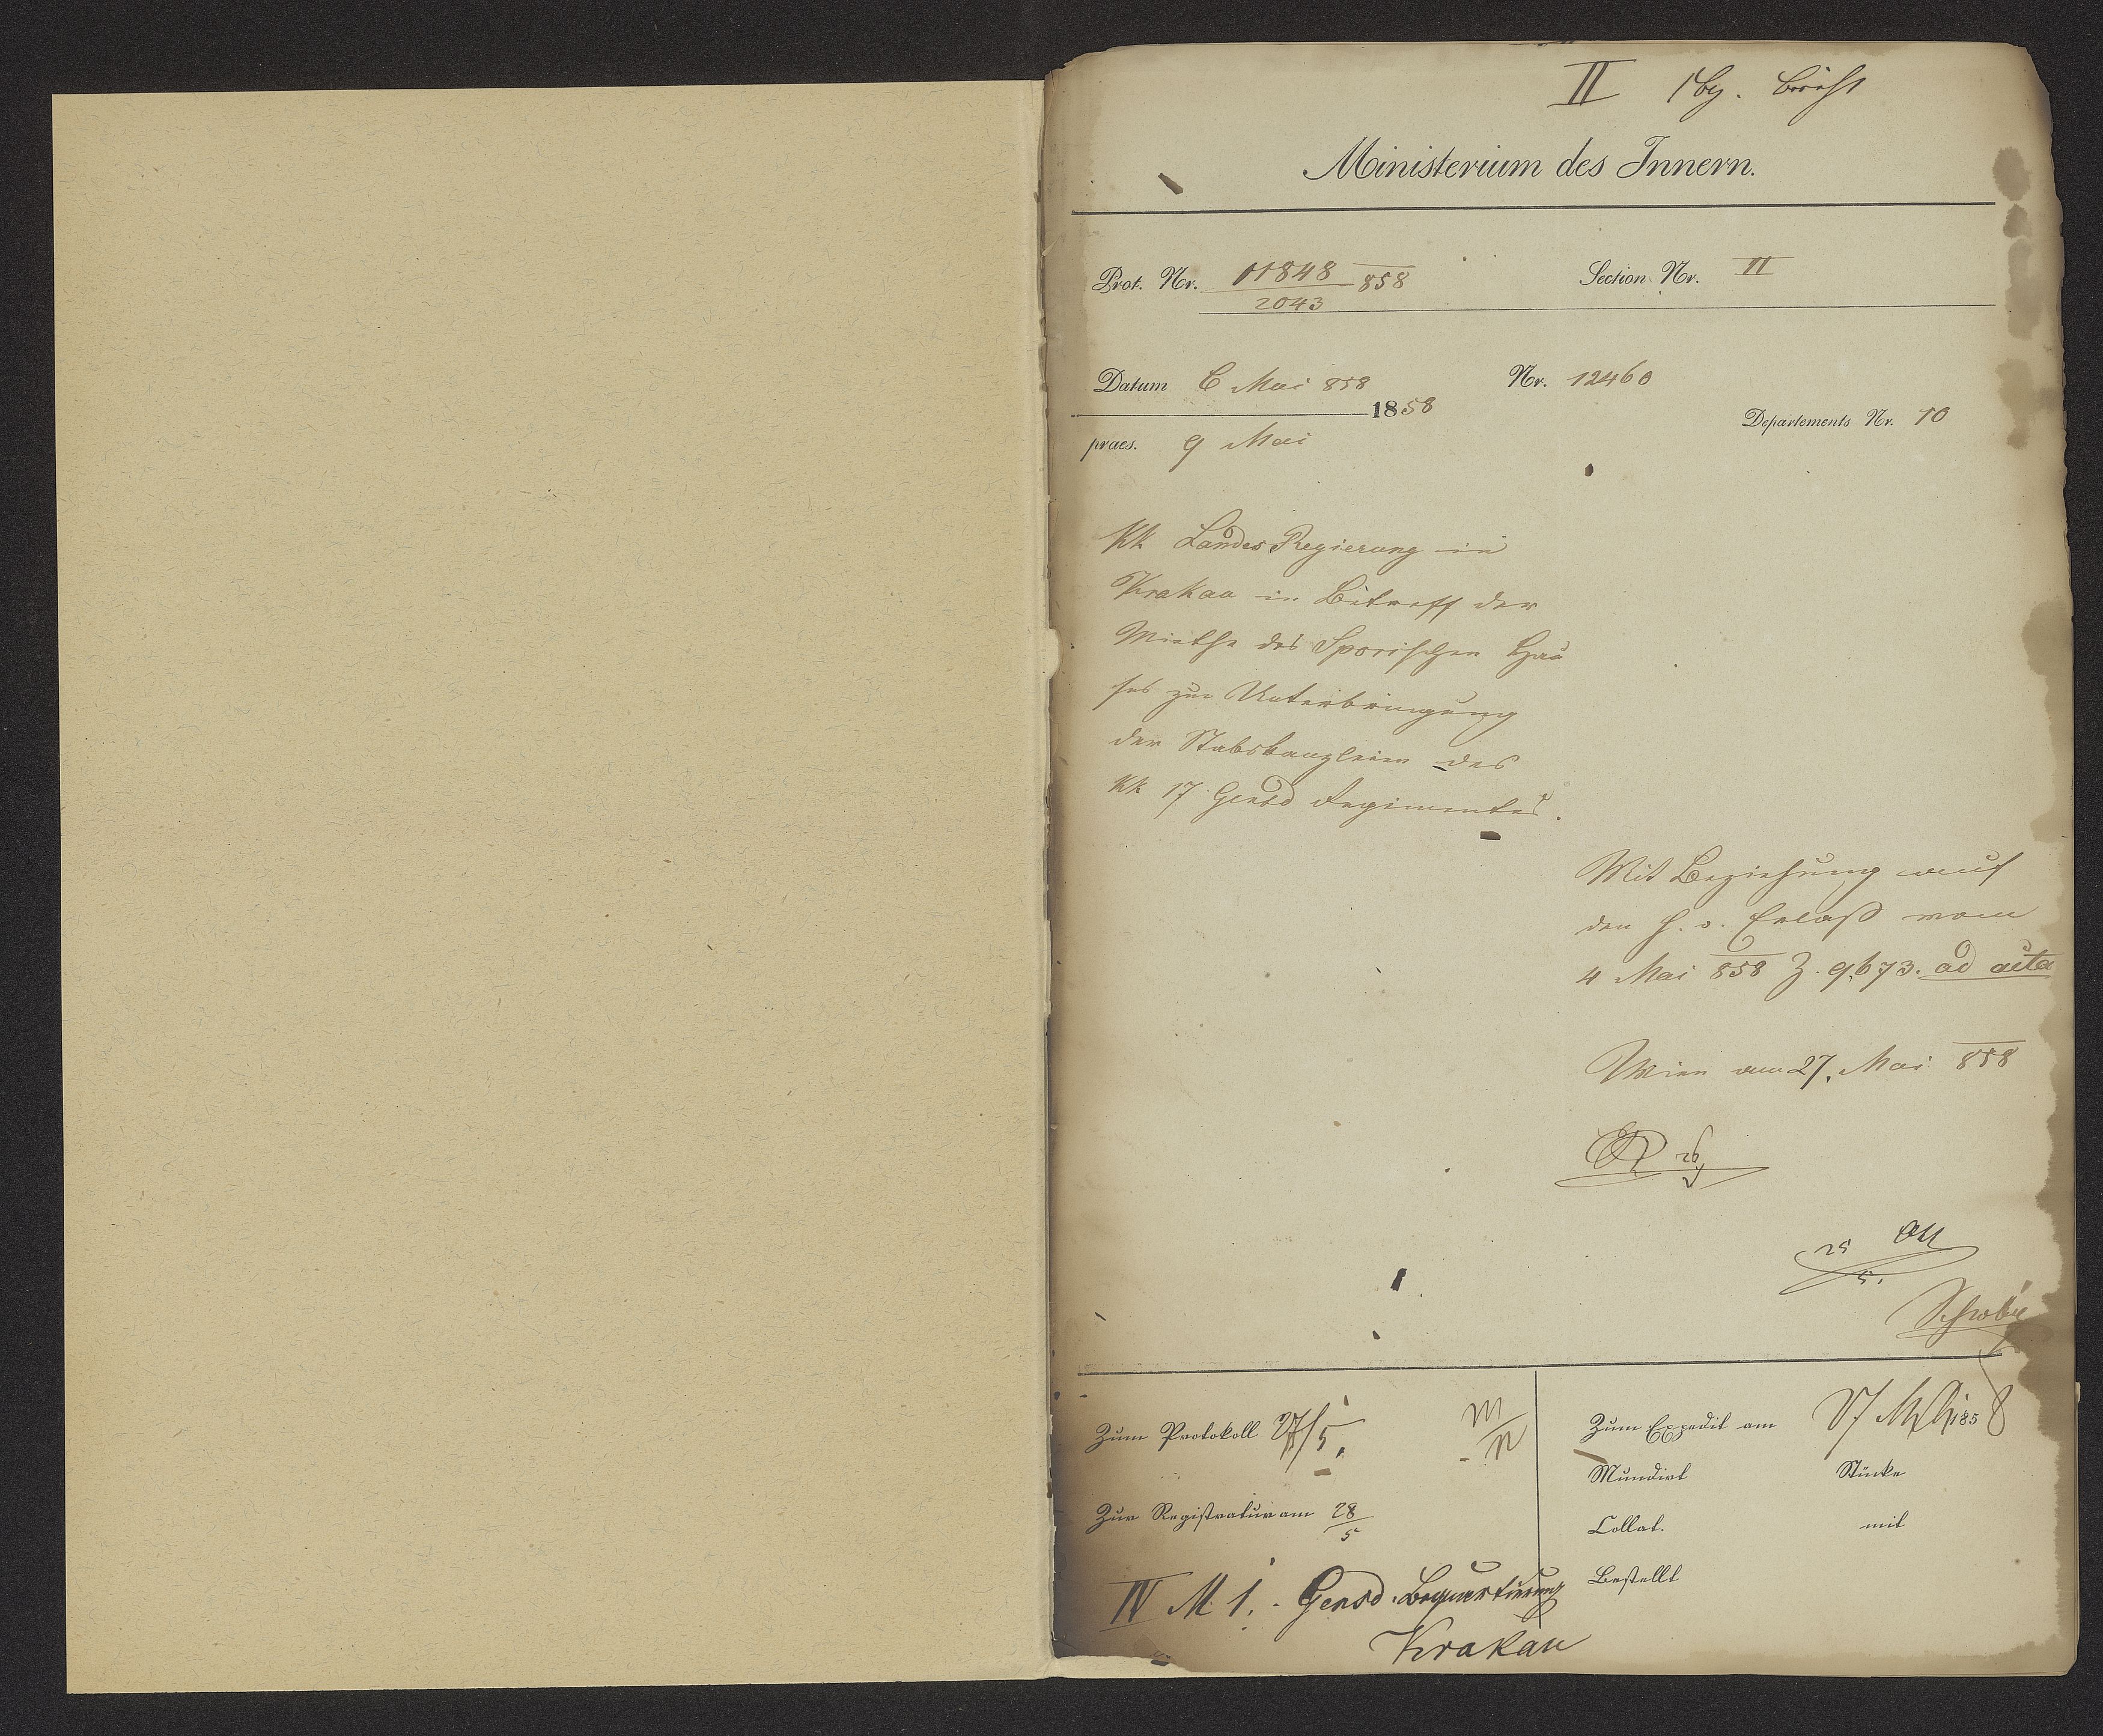 II
Ministerium des Innern.
Prot. Nr. 11848/2043 858 Section Nr. II
Datum 6 Mai 858 Nr. 12460
1858
Departements Nr. 10
praes. 9 Mai
KK LandesRegierung in
Krakau in Betreff der
Miethe des Sporischen Hau
ses zur Unterbringung
der Stabskanzleien des
KK 17 Gensd Regimentes.
Mit Beziehung auf
den h. o. Erlaß vom
4 Mai 858 Z. 9673. ad acta
Wien am 27. Mai 858
26
25
5.
Zum Protokoll 27/5.
Zum Expedit am 27 Mai 1858
Mundirt Stücke
Zur Registratur am 28/5
Collat. mit
Bestellt
IV M 1. Gensd. Bequartierung
Krakau